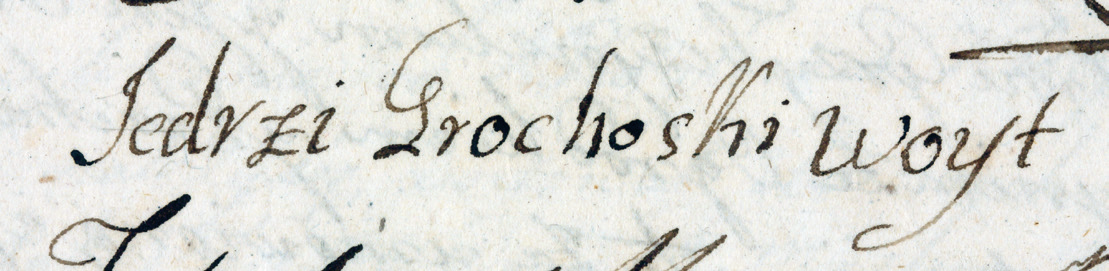 Jedrzi Grochoski Woyt